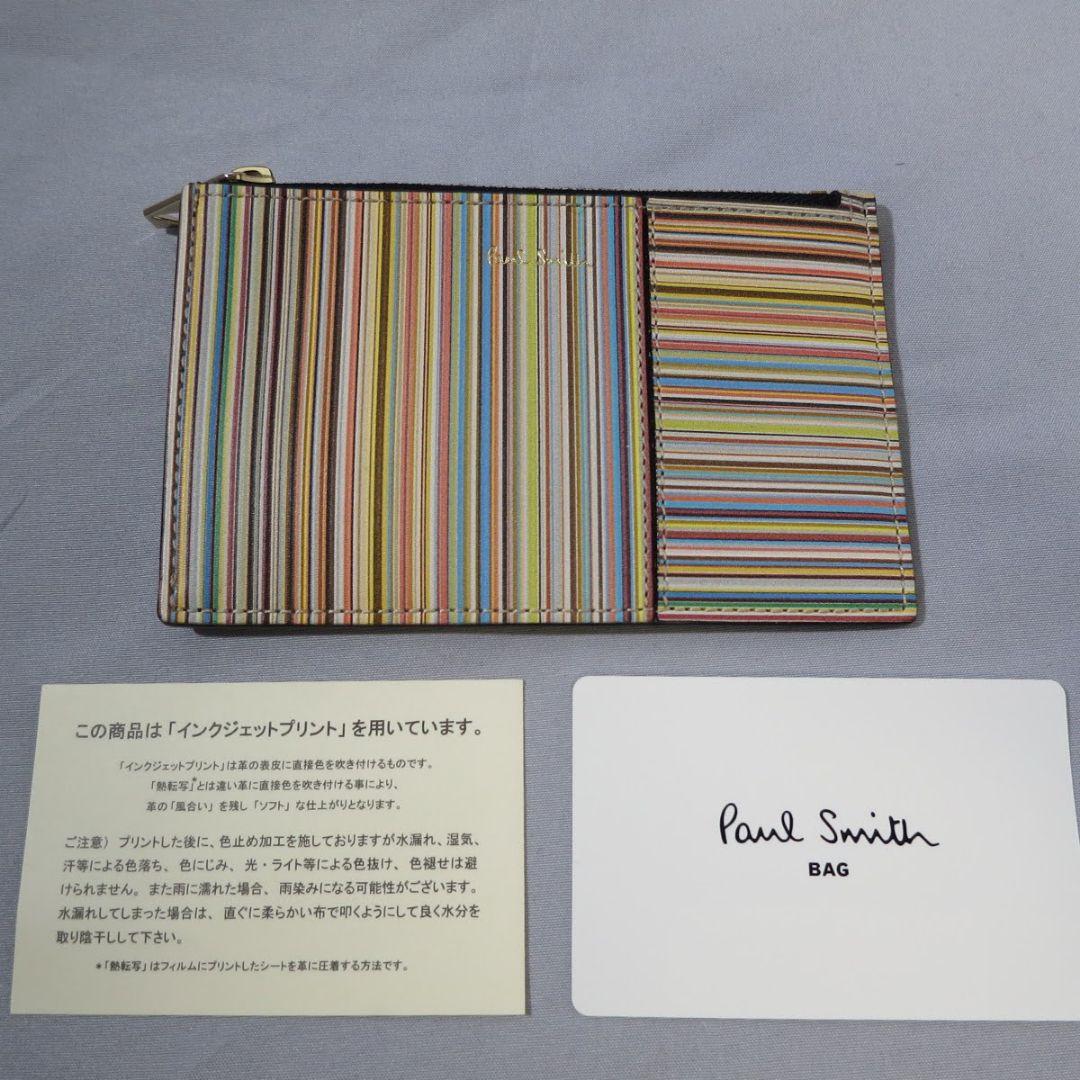 Paul Smith
この商品は「インクジェットプリント」を用いています。
「インクジェットプリント」は革の表皮に直接色を吹き付けるものです。
「熱転写」*とは違い革に直接色を吹き付ける事により、
革の「風合い」を残し「ソフト」な仕上がりとなります。
ご注意）プリントした後に、色止め加工を施しておりますが水漏れ、湿気、
汗等による色落ち、色にじみ、光・ライト等による色抜け、色褪せは避
けられません。また雨に濡れた場合、雨染みになる可能性がございます。
水漏れしてしまった場合は、直ぐに柔らかい布で叩くようにして良く水分を
取り陰干しして下さい。
*「熱転写」はフィルムにプリントしたシートを革に圧着する方法です。
Paul Smith
BAG